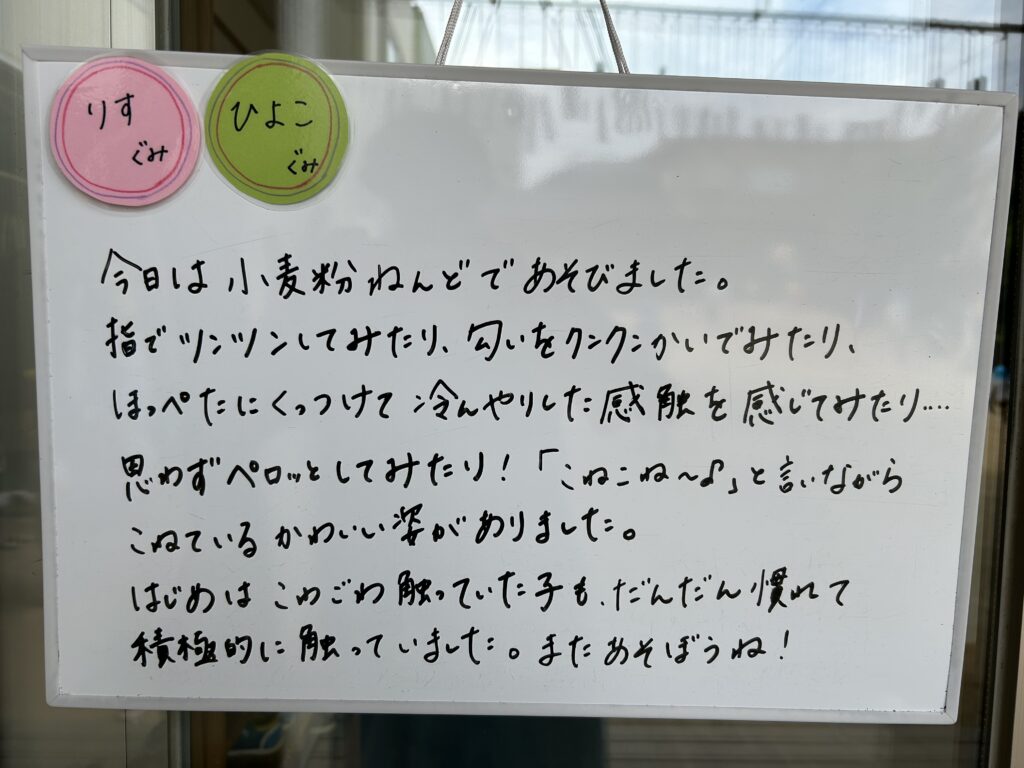 りす
ぐみ
ひよこ
ぐみ
今日は小麦粉ねんどであそびました。
指でツンツンしてみたり、匂いをクンクンかいでみたり、
ほっぺたにくっつけて冷んやりした感触を感じてみたり....
思わずペロッとしてみたり！「こねこね〜♪」と言いながら
こねているかわいい姿がありました。
はじめはこわごわ触っていた子も、だんだん慣れて
積極的に触っていました。またあそぼうね！